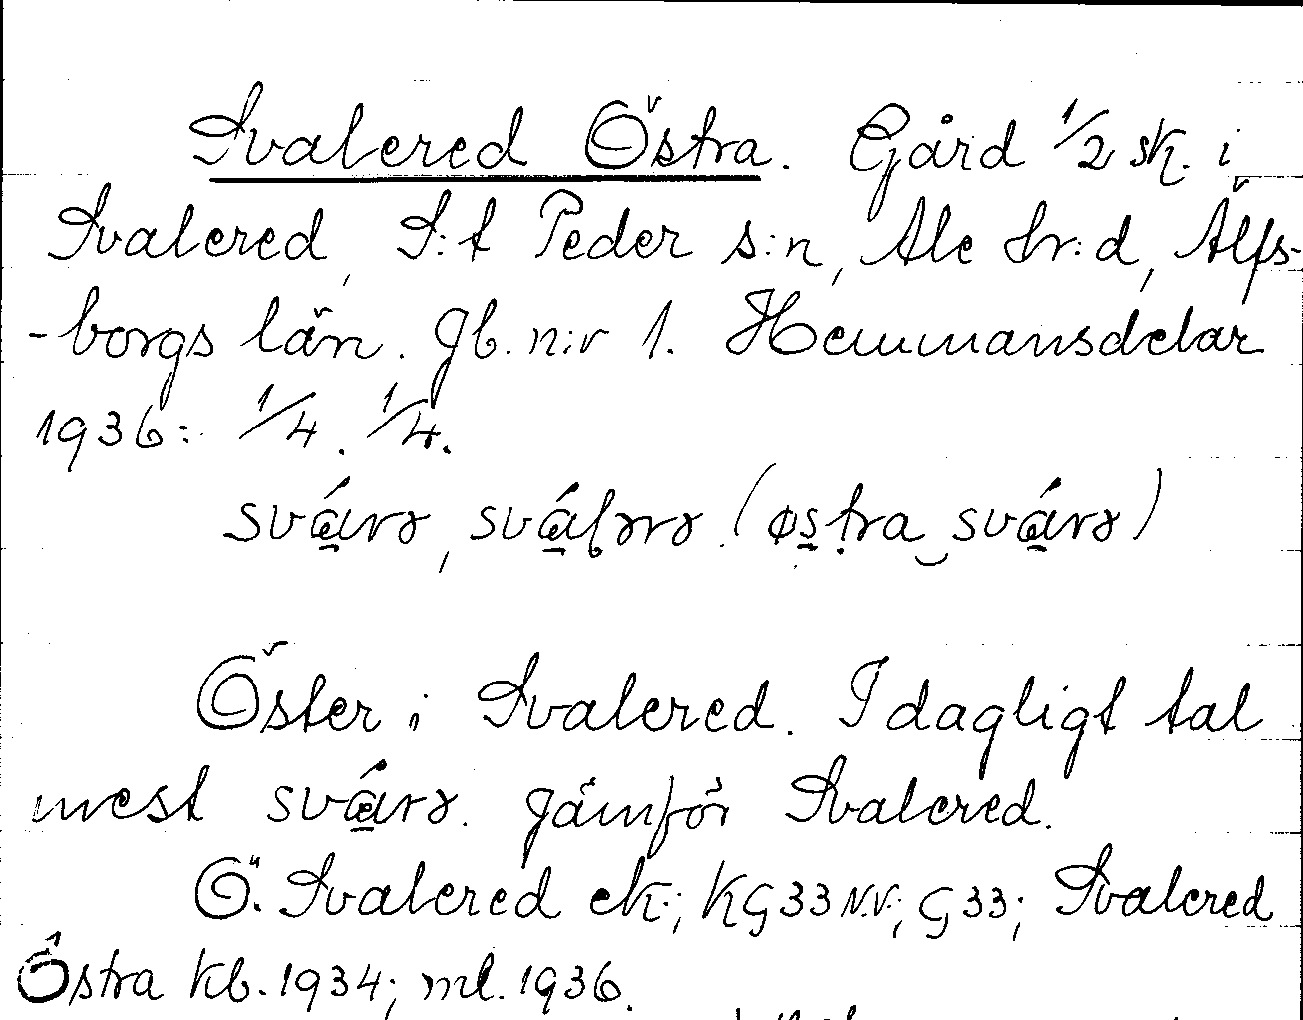 Svalered Östra. Gård 1/2 sk. i
Svalered, S:t Peder s:n, Ale hr:d, Älfs-
-borgs län. Jb. n:r 1. Hemmansdelar
1936: 1/4. 1/4.
Öster i Svalered. I dagligt tal
mest Jämför Svalered.
Ö. Svalered ek; KG33 N.V.; G33; Svalered
Östra kb. 1934; ml. 1936.